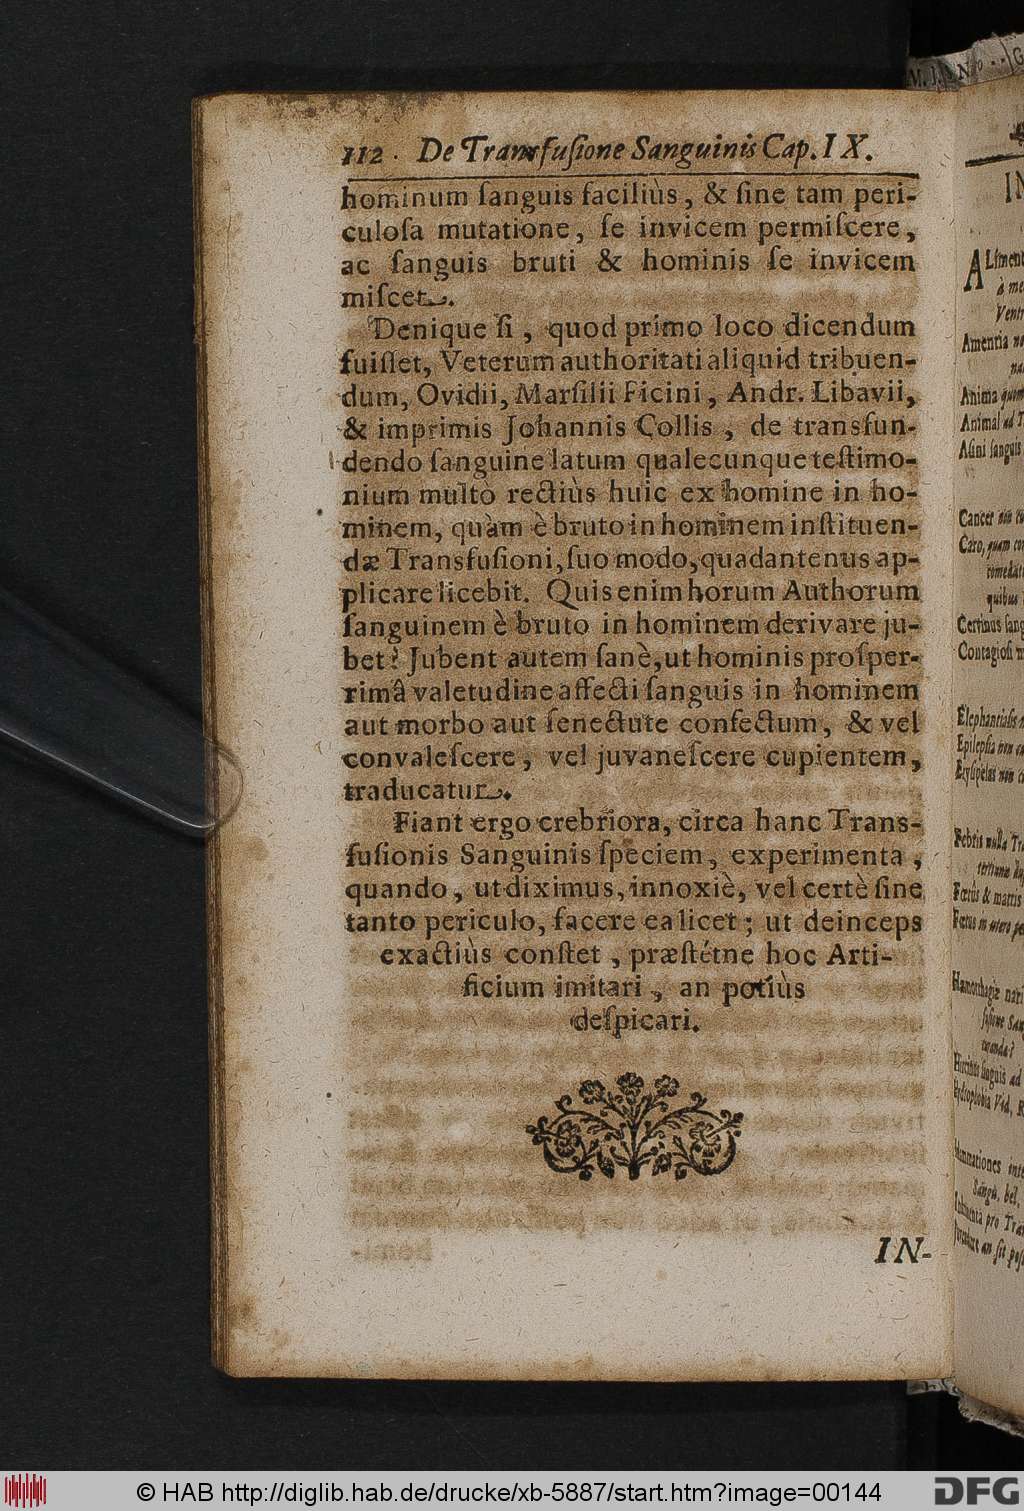 112. De Transfuſione Sanguinis Cap. IX.
hominum ſanguis faciliùs, & ſine tam peri-
culoſa mutatione, ſe invicem permiſcere,
ac ſanguis bruti & hominis ſe invicem
miſcet.
Denique ſi, quod primo loco dicendum
fuiſſet, Veterum authoritati aliquid tribuen-
dum, Ovidii, Marſilii Ficini, Andr. Libavii,
& imprimis Johannis Collis, de transfun-
dendo ſanguine latum qualecunque teſtimo-
nium multò rectiùs huic ex homine in ho-
minem, quàm è bruto in hominem inſtituen-
dæ Transfuſioni, ſuo modo, quadantenus ap-
plicare licebit. Quis enim horum Authorum
ſanguinem è bruto in hominem derivare ju-
bet? Jubent autem ſanè, ut hominis proſper-
rimâ valetudine affecti ſanguis in hominem
aut morbo aut ſenectute confectum, & vel
convaleſcere, vel juvaneſcere cupientem,
traducatur.
Fiant ergo crebriora, circa hanc Trans-
fuſionis Sanguinis ſpeciem, experimenta,
quando, ut diximus, innoxiè, vel certè ſine
tanto periculo, facere ea licet; ut deinceps
exactiùs conſtet, præſtétne hoc Arti-
ficium imitari, an potiùs
deſpicari.
IN-
Amentia
Anima
Animal ad
Aſini ſanguis
Cancer non
Caro, quam
quibus
Contagioſi
Epilepſia non
Febris nulla
Fœtus in utero
© HAB http://diglib.hab.de/drucke/xb-5887/start.htm?image=00144
DFG